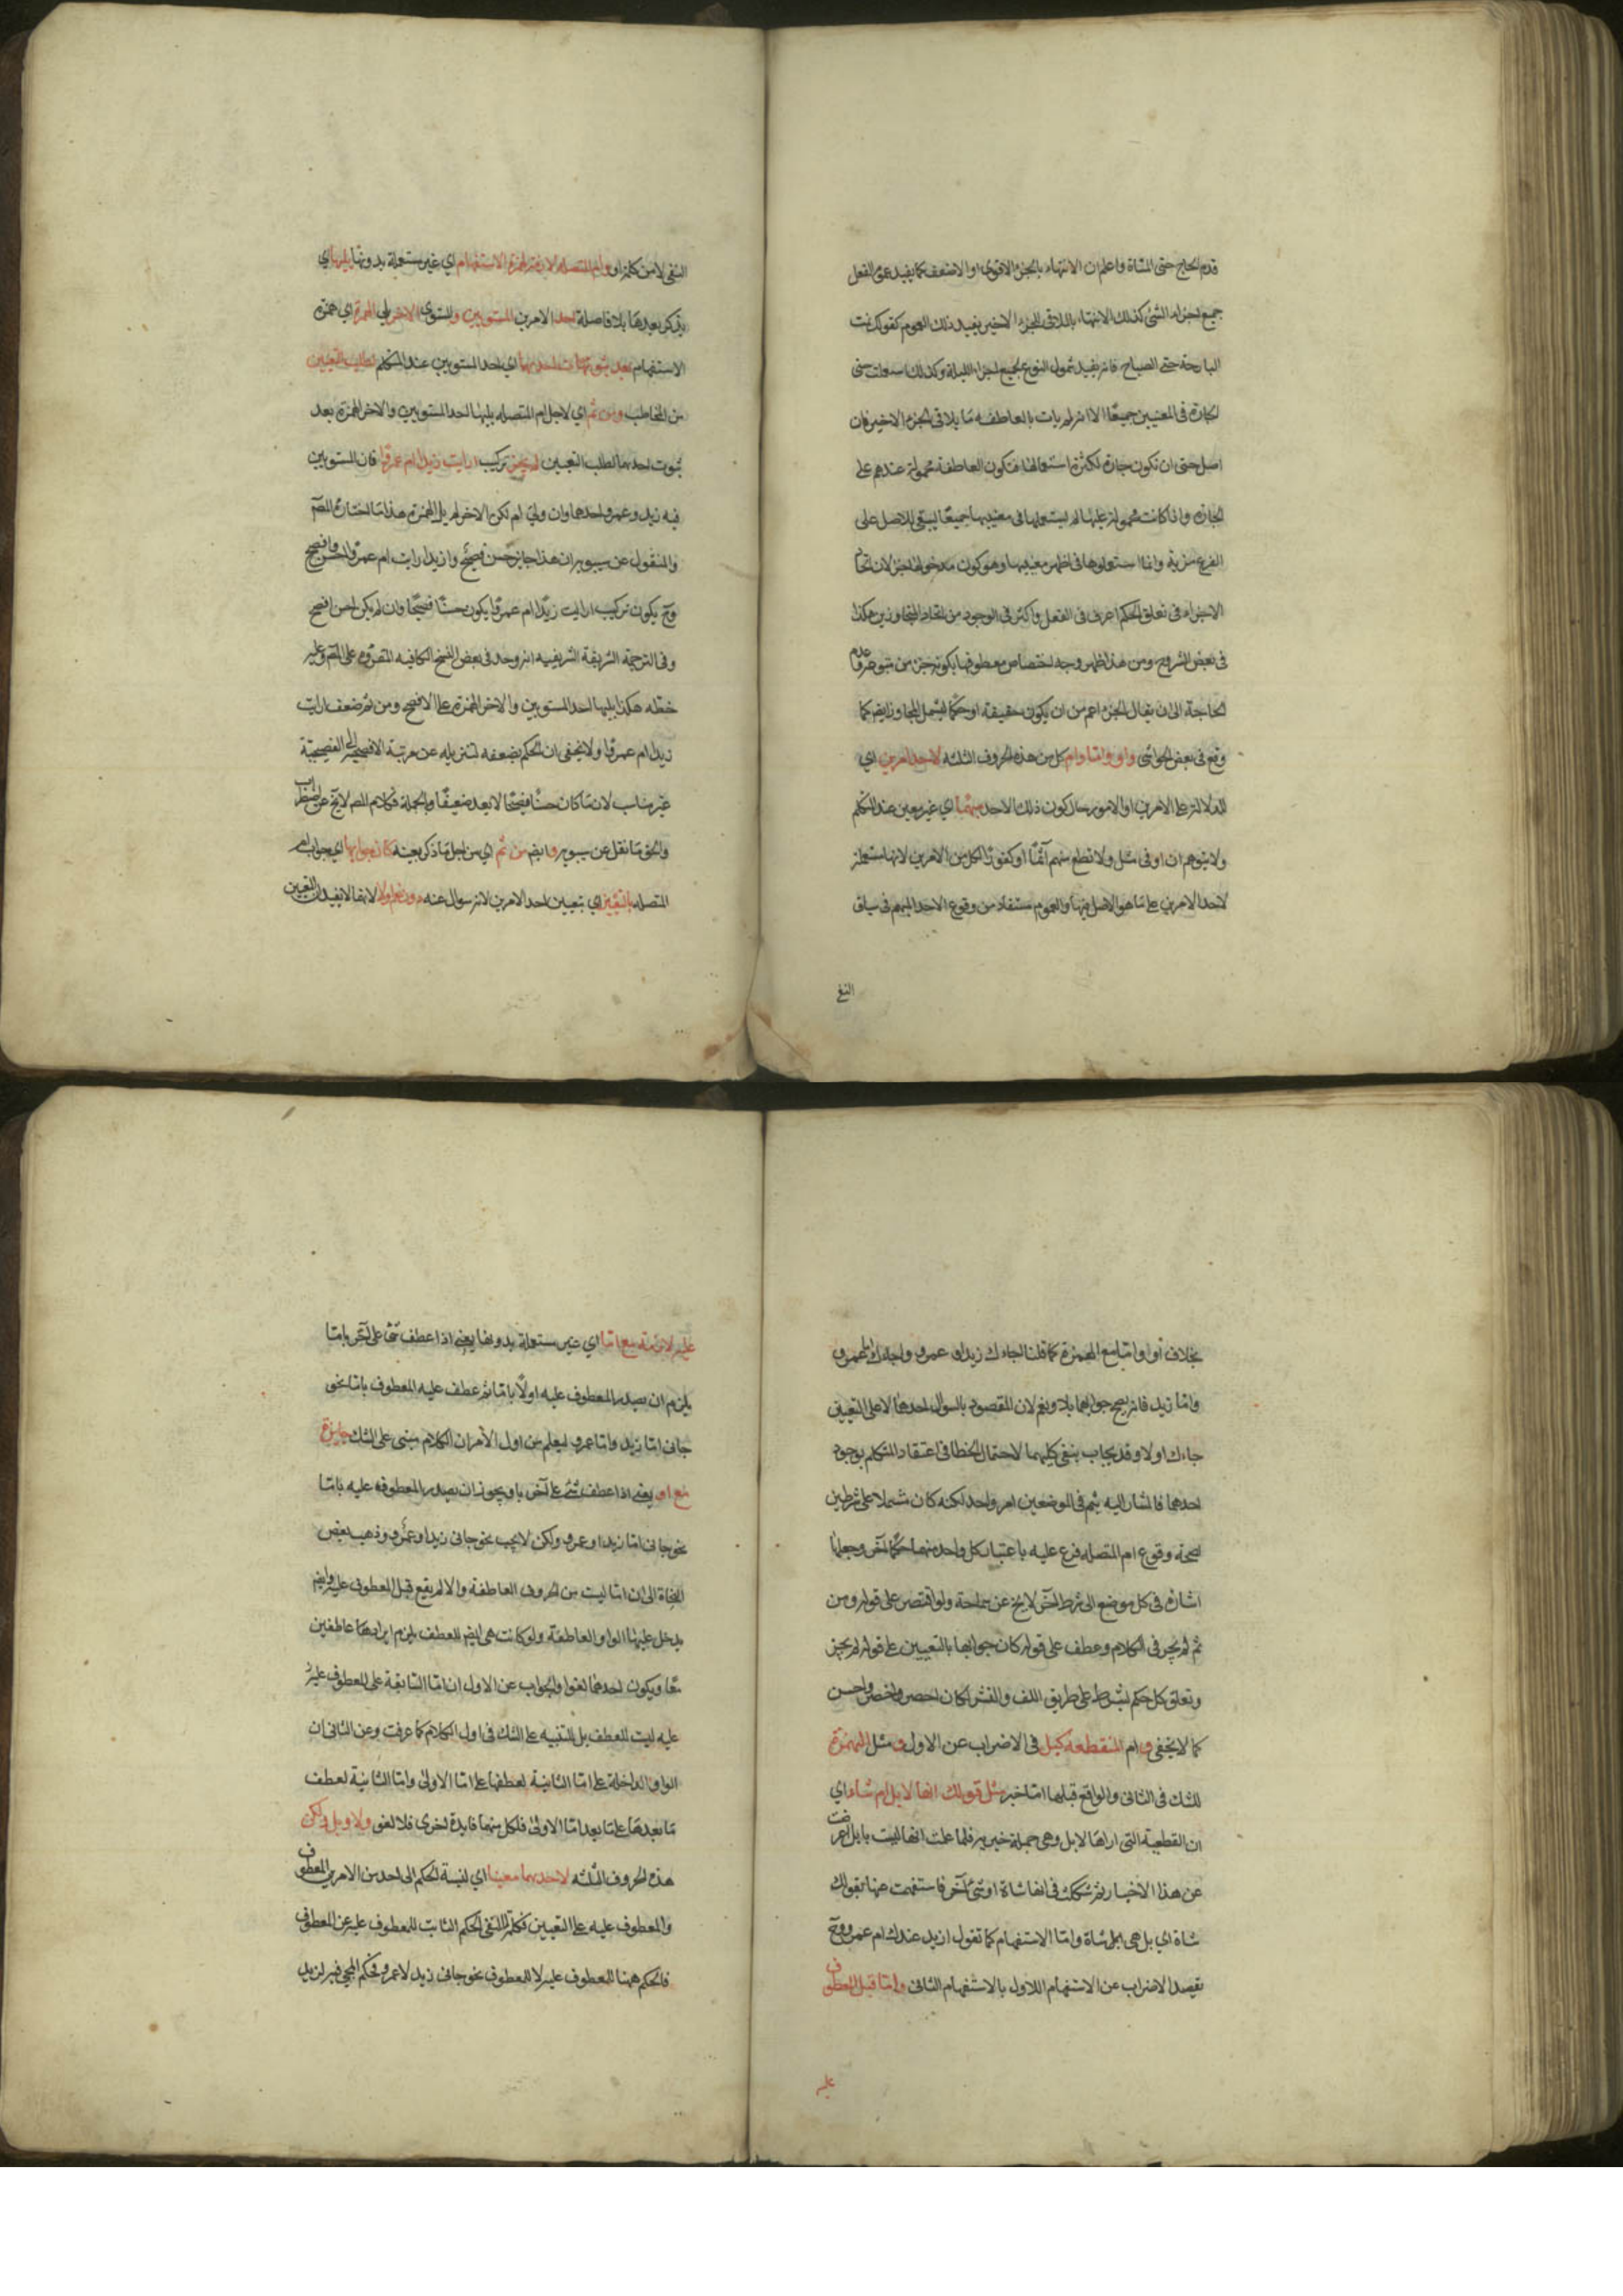 قدم الحاج حتى المشاة واعلم ان الانتهاء بالجزء الاقوى او الاضعف كما يفيد عموم الفعل
جميع اجزاء الشئ كذلك الانتهاء بالملاقى للجزء الاخير يفيد ذلك العموم كقولك نمت
البارحة حتى الصباح فانه يفيد شمول النوم لجميع اجزاء الليلة وكذلك استعملت حتى
الجارة فى المعنيين جميعًا الا انه لم يات بالعاطفه ما يلاقى الجزء الاخير فان
اصل حتى ان تكون جارة لكثرة استعمالها فتكون العاطفة محمولة عندهم على
الجارة واذا كانت محمولة عليها لم يستعملها فى معنييها جميعًا ليبقى للاصل على
الفرع مزية وانما استعملوها فى اظهر معنييها وهو كون مدخولها جزءا لان اتحاد
الاجزاء فى تعلق الحكم اعرف فى العقل واكثر فى الوجود من اتحاد المتجاوزين هكذا
فى بعض الشروح ومن هذا ظهر وجه اختصاص معطوفها بكونه جزءا من متبوعه وعدم
الحاجة الى ان يقال الجزء اعم من ان يكون حقيقة او حكمًا ليشمل المجاور ايضا كما
وقع فى بعض الحواشى واو واما وام كل من هذه الحروف الثلثه لاحد الامرين اى
للدلالة على الامرين او الامور حال كون ذلك الاحد مبهمًا اى غير معين عند المتكلم
ولا يتوهم ان او فى مثل ولا تطع منهم آثمًا او كفورًا لكل من الامرين لانها مستعملة
لاحد الامرين على ما هو الاصل فيها والعموم مستفاد من وقوع الاحد المبهم فى سياق
النفى
النفى لا من كلمة او وام المتصله لازمة لهمزة الاستفهام اى غير مستعملة بدونها يليها اى
يذكر بعدها بلا فاصلة احد الامرين المستويين والمستوى الاخر يلى الهمزة اى همزة
الاستفهام بعد ثبوت احدهما اى احد المستويين عند المتكلم لطلب التعيين
من المخاطب ومن ثم اى لاجل ام المتصله يليها احد المستويين والاخر الهمزة بعد
ثبوت احدهما لطلب التعيين لم يجز تركيب ارايت زيدا ام عمرًوا فان المستويين
فيه زيد وعمرو احدهما وان ولى ام لكن الاخر لم يل الهمزة هذا ما اختاره المصّ
والمنقول عن سيبويه ان هذا جايز حسن فصيح وازيدا رايت ام عمرًوا احسن وافصح
وح يكون تركيب ارايت زيدًا ام عمرًوا يكون حسنًا فصيحًا وان لم يكن احسن افصح
وفى الترجمة الشريفة الشريفيه انه وجد فى بعض النسخ الكافيه المقروءه على المصّ وعليه
خطّه هكذا يليها احد المستويين والاخر الهمزة على الافصح ومن ثم ضعف ارايت
زيدا ام عمرًوا ولا يخفى ان الحكم بضعفه لتنزيله عن مرتبة الافصحية الى الفصيحيّة
غير مناسب لان ما كان حسنًا فصيحًا لا يعد ضعيفًا وبالجملة فكلام المص لا يخ عن اضطراب
والحق ما نقل عن سيبويه وايضا من ثم اى من اجل ما ذكر بعينه كان جوابها اى جواب ام
المتصله بالتعيين اى بتعيين احد الامرين لانه سوال عنه دون نعم او لا لانهما لا يفيدان التعيين
بخلاف او واما مع الهمزة كما قلنا اجاءك زيد او عمرو واجاءك اما عمرو
واما زيد فانه يصح جوابهما بلا ونعم لان المقصود بالسوال احدهما لا على التعيين
جاءك او لا وقد يجاب بنفى كليهما لاحتمال الخطا فى اعتقاد المتكلم بوجود
احدهما فالمشار اليه بثم فى الموضعين امر واحد لكنه كان مشتملا على شرطين
لصحة وقوع ام المتصله فرع عليه باعتبار كل واحد منهما حكمًا آخر وجعلها
اشارة فى كل موضع الى شرط آخر لا يخ عن سماجة ولو اقتصر على قوله ومن
ثم لم يجز فى الكلام وعطف على قوله كان جوابها بالتعيين على قوله لم يجز
وتعلق كل حكم بشرط على طريق اللف والنشر لكان احصر واخصر واحسن
كما لا يخفى وام المنقطعه كبل فى الاضراب عن الاول ومثل الهمزة
للشك فى الثانى والواقع قبلها اما خبر مثل قولك انها لابل ام شاء اى
ان القطيعة التى اراها لابل وهى جملة خبريه فلما علمت انها ليست بابل اعرضت
عن هذا الاخبار ثم شككت فى انها شاة او شئ آخر فاستفهمت عنها بقولك
شاة اى بل هى بل شاة واما الاستفهام كما تقول ازيد عندك ام عمرو وح
تقصد الاضراب عن الاستفهام الاول بالاستفهام الثانى واما قبل المعطوف
عليه
عليه لازمة مع اما اى غير مستعملة بدونها يعنى اذا عطف شئ على آخر باما
يلزم ان يصدر المعطوف عليه اولًا باما ثم عطف عليه المعطوف باما نحو
جانى اما زيد واما عمرو ليعلم من اول الامر ان الكلام مبنى على الشك جايزة
مع او يعنى اذا عطف شئ على آخر باو يجوز ان يصدر المعطوفه عليه باما
نحو جانى اما زيد او عمرو ولكن لا يجب نحو جانى زيد او عمرو وذهب بعض
النحاة الى ان اما ليست من الحروف العاطفة والا لم يقع قبل المعطوف عليه وايضا
يدخل عليها الواو العاطفة ولو كانت هى ايضا للعطف يلزم ايرادهما عاطفين
معًا ويكون احدهما لغوا والجواب عن الاول ان اما السابقة على المعطوف عليه
عليه ليست للعطف بل للتنبيه على الشك فى اول الكلام كما عرفت وعن الثانى ان
الواو الداخلة على اما الثانية لعطفها على اما الاولى واما الثانية لعطف
ما بعدها على ما بعد اما الاولى فلكل منهما فايدة اخرى فلا لغو ولا وبل ولكن
هذه الحروف الثلثه لاحدهما معينا اى لنسبة الحكم الى احد من الامرين المعطوف
والمعطوف عليه على التعيين فكلمة لا لنفى الحكم الثابت للمعطوف عليه عن المعطوف
فالحكم ههنا للمعطوف عليه لا للمعطوف نحو جانى زيد لا عمرو فحكم المجى فيه لزيد